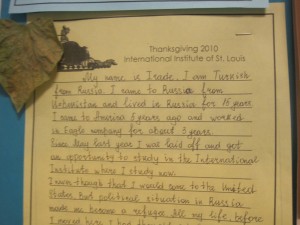 Thanksgiving 2010
International Institute of St. Louis
My name is Irade. I am Turkish
from Russia. I came to Russia from
Uzbekistan and lived in Russia for 15 years
I came to America 5 years ago and worked
in Eagle company for about 3 years
Since May last year I was laid off and got
an opportunity to study in the International
Institute where I study now.
I even though that I would come to the United
States. But political situation in Russia
made me become a refugee. All my life, before
I moved here I had